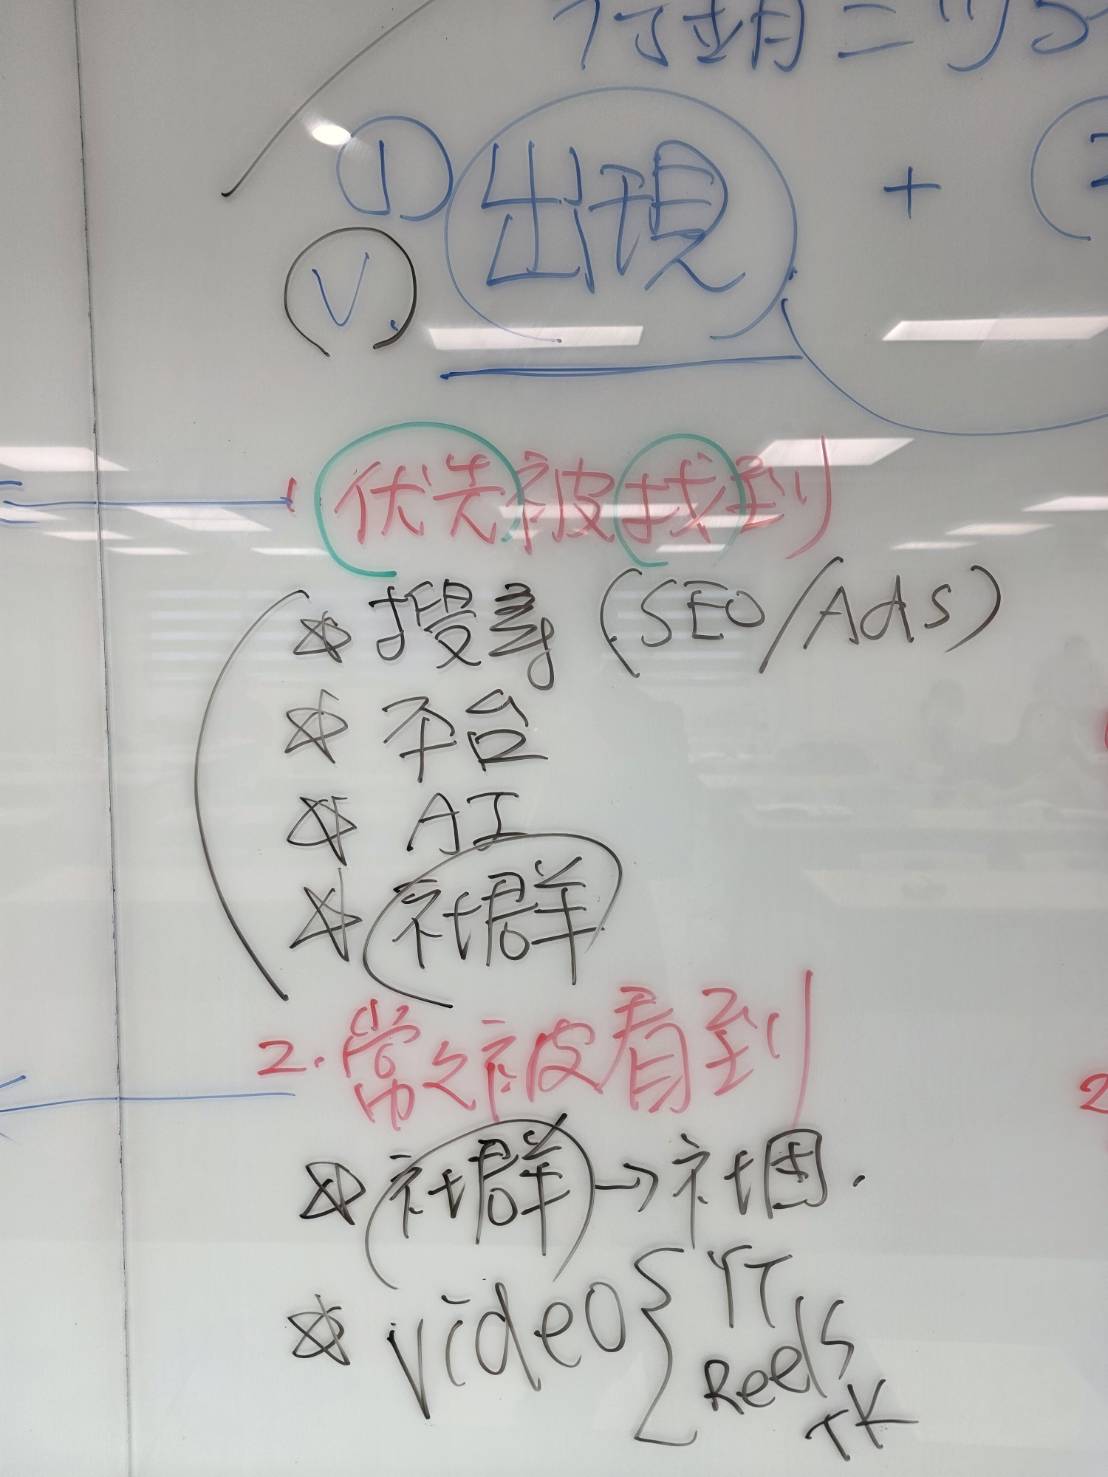 行銷二
① 出現 +
V.
1 优先被找到
☆ 搜尋 (SEO/Ads)
☆ 平台
☆ AI
☆ 社群
2. 常々被看到
☆ 社群→社团.
☆ video { YT
Reels
TK
2